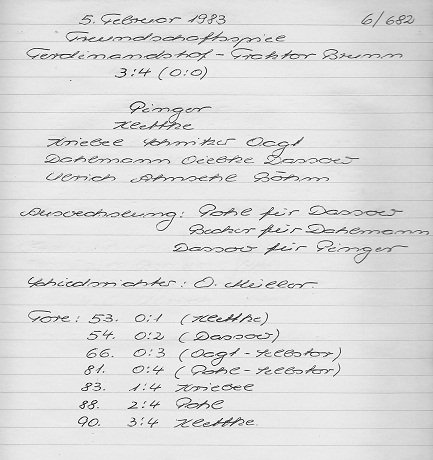 5. Februar 1983 6/682
Freundschaftsspiel
Ferdinandshof - Traktor Brunn
3:4 (0:0)
Pinger
Klettke
Kriebel Schnitzer Vogt
Dahlmann Vietke Dassow
Ulrich Amsehl Böhm
Auswechslung: Pohl für Dassow
Becker für Dahlmann
Dassow für Pinger
Schiedsrichter: O. Müller
Tore: 53. 0:1 (Klettke)
54. 0:2 (Dassow)
66. 0:3 (Vogt - Selbstor)
81. 0:4 (Pohl - Selbstor)
83. 1:4 Kriebel
88. 2:4 Pohl
90. 3:4 Klettke